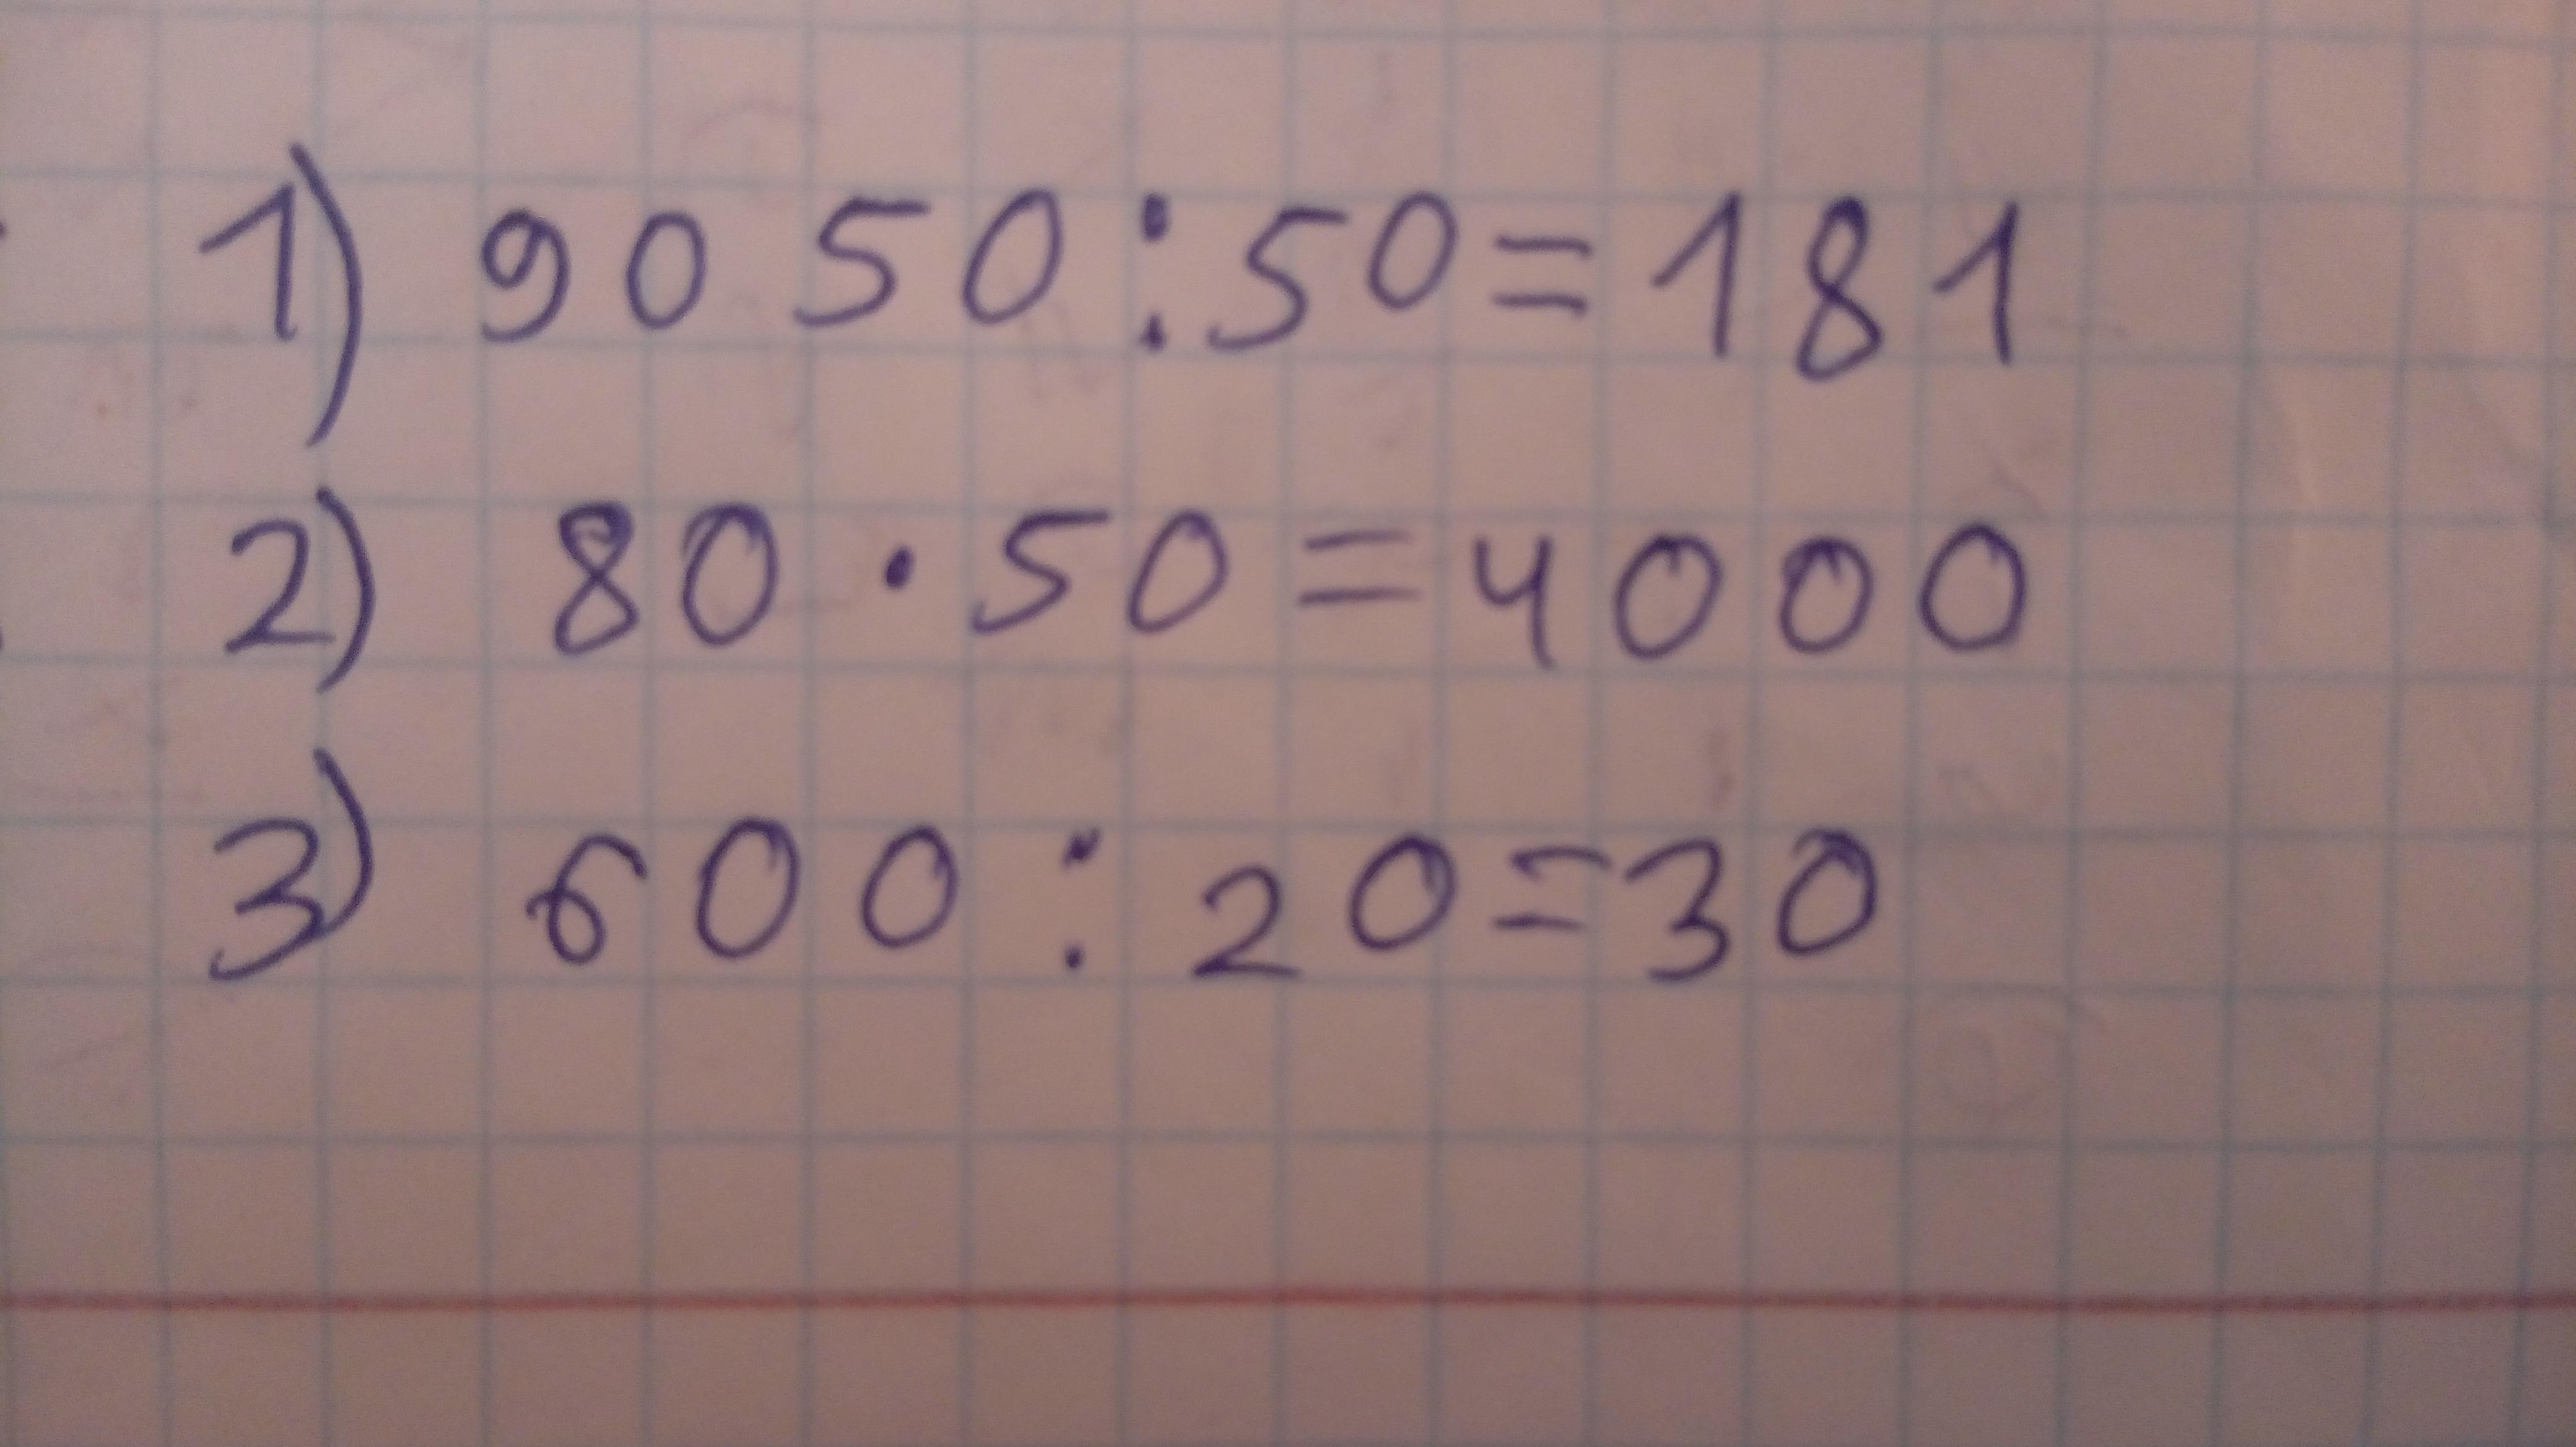 1) 9050:50=181
2) 80·50=4000
3) 600:20=30